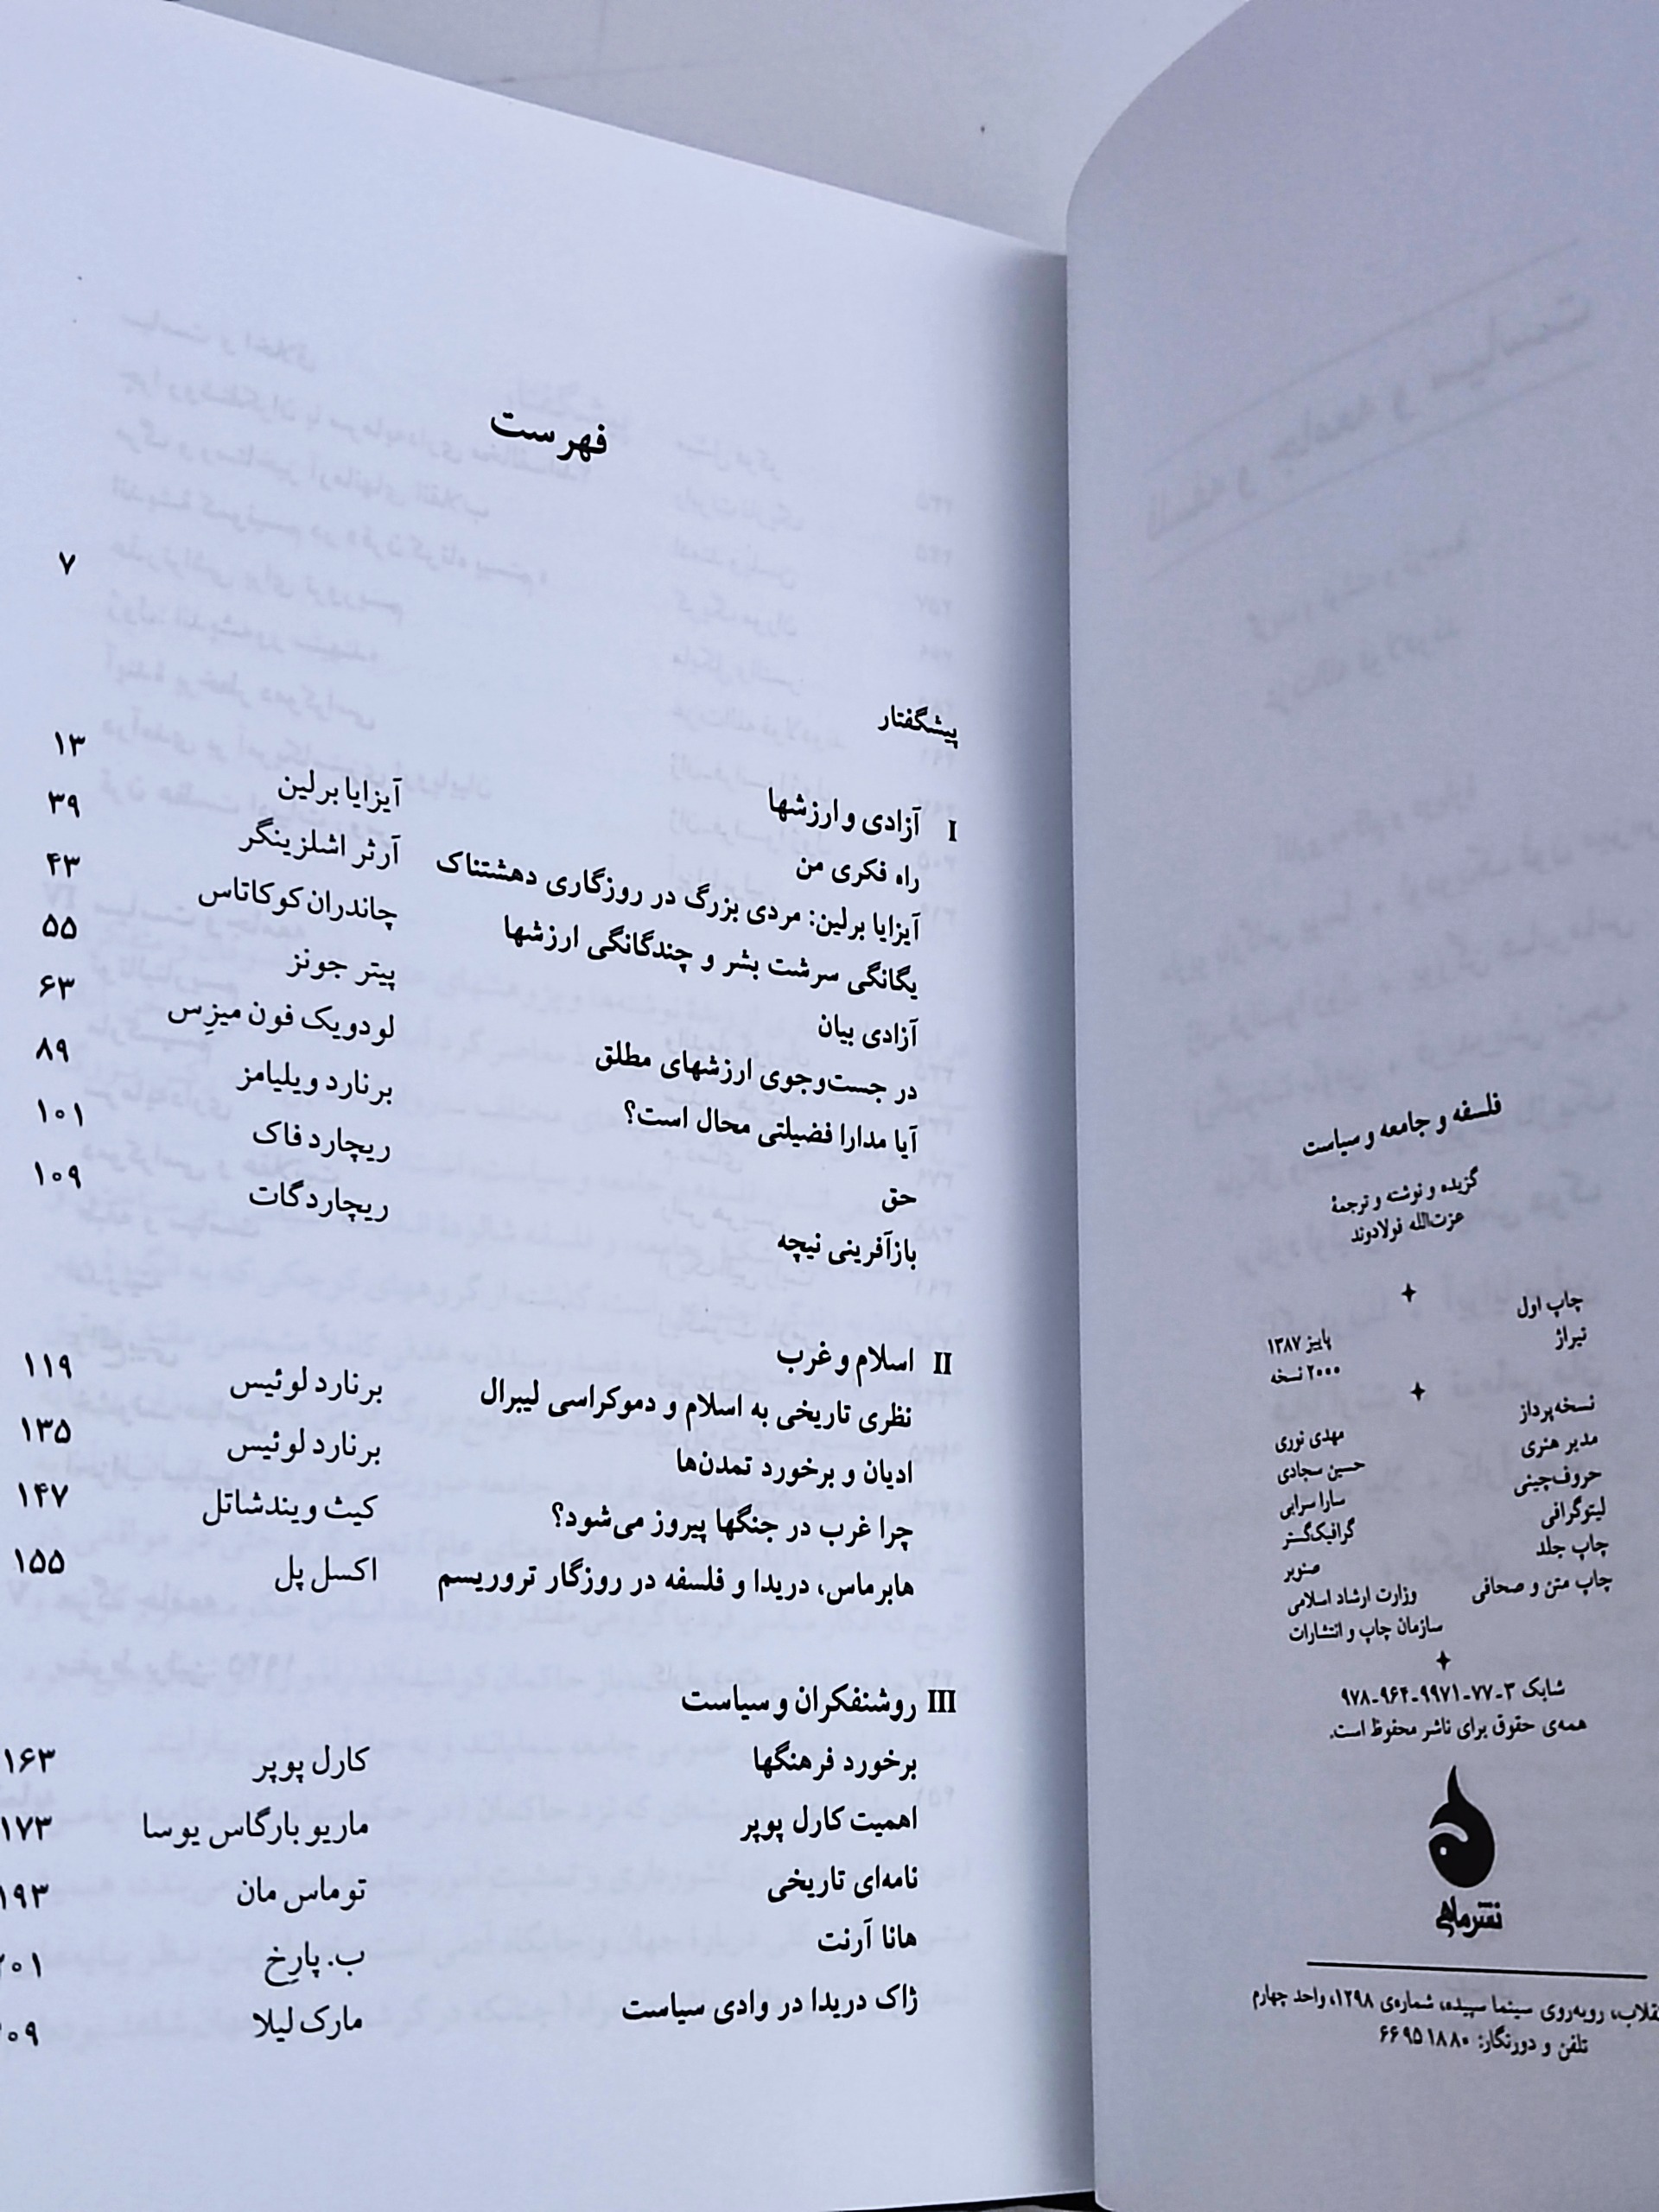 فلسفه و جامعه و سیاست
گزیده و نوشته و ترجمهٔ
عزت‌الله فولادوند
چاپ اول پاییز ۱۳۸۷
تیراژ ۲۰۰۰ نسخه
نسخه‌پرداز مهدی نوری
مدیر هنری حسین سجادی
حروف‌چینی سارا سرایی
لیتوگرافی گرافیک‌گستر
چاپ جلد صنوبر
چاپ متن و صحافی وزارت ارشاد اسلامی
سازمان چاپ و انتشارات
شابک ۳-۷۷-۹۹۷۱-۹۶۴-۹۷۸
همه‌ی حقوق برای ناشر محفوظ است.
نشر ماهی
روبه‌روی سینما سپیده، شماره‌ی ۱۲۹۸، واحد چهارم
تلفن و دورنگار: ۶۶۹۵۱۸۸۰
فهرست
پیشگفتار ۷
I آزادی و ارزشها
راه فکری من آیزایا برلین ۱۳
آیزایا برلین: مردی بزرگ در روزگاری دهشتناک آرثر اشلزینگر ۳۹
یگانگی سرشت بشر و چندگانگی ارزشها چاندران کوکاتاس ۴۳
آزادی بیان پیتر جونز ۵۵
در جست‌وجوی ارزشهای مطلق لودویک فون میزِس ۶۳
آیا مدارا فضیلتی محال است؟ برنارد ویلیامز ۸۹
حق ریچارد فاک ۱۰۱
بازآفرینی نیچه ریچارد گات ۱۰۹
II اسلام و غرب
نظری تاریخی به اسلام و دموکراسی لیبرال برنارد لوئیس ۱۱۹
ادیان و برخورد تمدن‌ها برنارد لوئیس ۱۳۵
چرا غرب در جنگها پیروز می‌شود؟ کیث ویندشاتل ۱۴۷
هابرماس، دریدا و فلسفه در روزگار تروریسم اکسل پل ۱۵۵
III روشنفکران و سیاست
برخورد فرهنگها کارل پوپر ۱۶۳
اهمیت کارل پوپر ماریو بارگاس یوسا ۱۷۳
نامه‌ای تاریخی توماس مان ۱۹۳
هانا آرنت ب. پارِخ ۲۰۱
ژاک دریدا در وادی سیاست مارک لیلا ۲۰۹